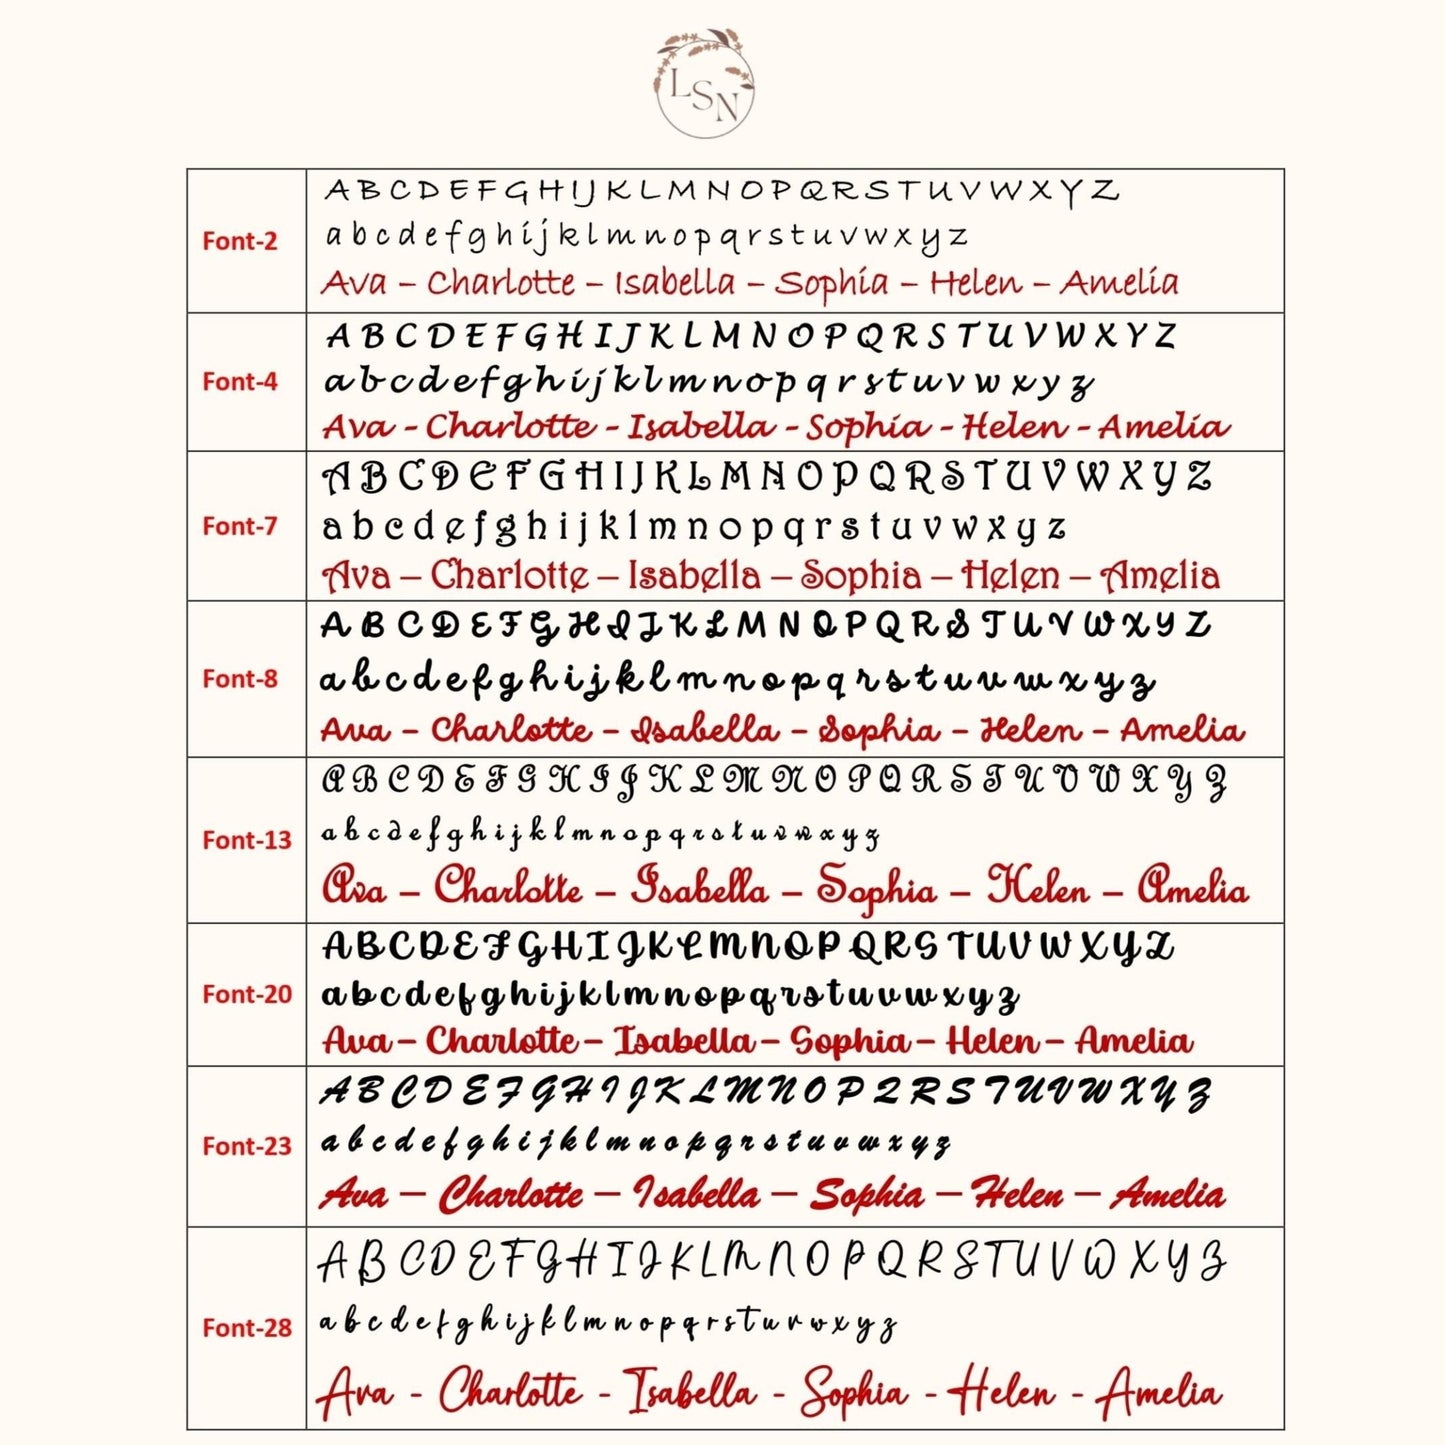 LSN
Font-2
A B C D E F G H I J K L M N O P Q R S T U V W X Y Z
a b c d e f g h i j k l m n o p q r s t u v w x y z
Ava – Charlotte – Isabella – Sophia – Helen – Amelia
Font-4
A B C D E F G H I J K L M N O P Q R S T U V W X Y Z
a b c d e f g h i j k l m n o p q r s t u v w x y z
Ava - Charlotte - Isabella - Sophia - Helen - Amelia
Font-7
A B C D E F G H I J K L M N O P Q R S T U V W X Y Z
a b c d e f g h i j k l m n o p q r s t u v w x y z
Ava – Charlotte – Isabella – Sophia – Helen – Amelia
Font-8
A B C D E F G H I J K L M N O P Q R S T U V W X Y Z
a b c d e f g h i j k l m n o p q r s t u v w x y z
Ava – Charlotte – Isabella – Sophia – Helen – Amelia
Font-13
A B C D E F G H I J K L M N O P Q R S T U V W X Y Z
a b c d e f g h i j k l m n o p q r s t u v w x y z
Ava – Charlotte – Isabella – Sophia – Helen – Amelia
Font-20
A B C D E F G H I J K L M N O P Q R S T U V W X Y Z
a b c d e f g h i j k l m n o p q r s t u v w x y z
Ava – Charlotte – Isabella – Sophia – Helen – Amelia
Font-23
A B C D E F G H I J K L M N O P Q R S T U V W X Y Z
a b c d e f g h i j k l m n o p q r s t u v w x y z
Ava – Charlotte – Isabella – Sophia – Helen – Amelia
Font-28
A B C D E F G H I J K L M N O P Q R S T U V W X Y Z
a b c d e f g h i j k l m n o p q r s t u v w x y z
Ava - Charlotte - Isabella - Sophia - Helen - Amelia